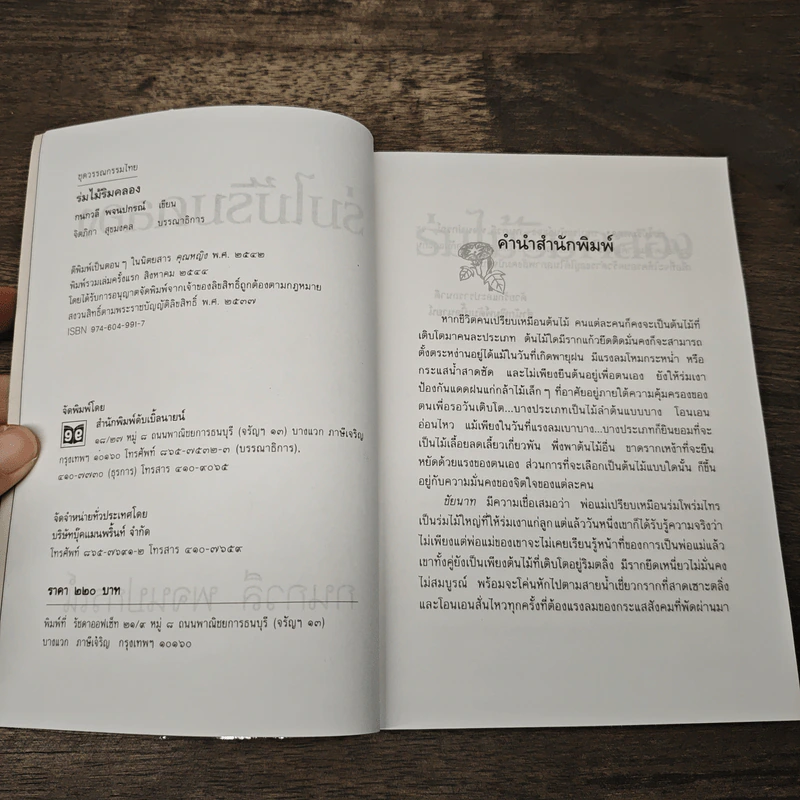 ชุดวรรณกรรมไทย
ร่มไม้ริมคลอง
กนกวลี พจนปกรณ์ เขียน
จิตภิกา สุขมงคล บรรณาธิการ
ตีพิมพ์เป็นตอนๆ ในนิตยสาร คุณหญิง พ.ศ. ๒๕๔๒
พิมพ์รวมเล่มครั้งแรก สิงหาคม ๒๕๔๔
โดยได้รับการอนุญาตจัดพิมพ์จากเจ้าของลิขสิทธิ์ถูกต้องตามกฎหมาย
สงวนสิทธิ์ตามพระราชบัญญัติลิขสิทธิ์ พ.ศ. ๒๕๓๗
ISBN 974-604-991-7
จัดพิมพ์โดย
สำนักพิมพ์ดับเบิ้ลนายน์
๑๘/๒๗ หมู่ ๘ ถนนพาณิชยการธนบุรี (จรัญฯ ๑๓) บางแวก ภาษีเจริญ
กรุงเทพฯ ๑๐๑๖๐ โทรศัพท์ ๘๖๕-๗๕๓๒-๓ (บรรณาธิการ).
๔๑๐-๗๗๓๐ (ธุรการ) โทรสาร ๔๑๐-๙๐๖๕
จัดจำหน่ายทั่วประเทศโดย
บริษัทบุ๊คแมนพริ้นท์ จำกัด
โทรศัพท์ ๘๖๕-๗๖๙๑-๒ โทรสาร ๔๑๐-๗๖๕๙
ราคา ๒๒๐ บาท
พิมพ์ที่ รัชดาออฟเซ็ท ๒๑/๙ หมู่ ๘ ถนนพาณิชยการธนบุรี (จรัญฯ ๑๓)
บางแวก ภาษีเจริญ กรุงเทพฯ ๑๐๑๖๐
คำนำสำนักพิมพ์
หากชีวิตคนเปรียบเหมือนต้นไม้ คนแต่ละคนก็คงจะเป็นต้นไม้ที่
เติบโตมาคนละประเภท ต้นไม้ใดมีรากแก้วยึดติดมั่นคงก็จะสามารถ
ตั้งตระหง่านอยู่ได้แม้ในวันที่เกิดพายุฝน มีแรงลมโหมกระหน่ำ หรือ
กระแสน้ำสาดซัด และไม่เพียงยืนต้นอยู่เพื่อตนเอง ยังให้ร่มเงา
ป้องกันแดดฝนแก่กล้าไม้เล็กๆ ที่อาศัยอยู่ภายใต้ความคุ้มครองของ
ตนเพื่อรอวันเติบโต...บางประเภทเป็นไม้ลำต้นแบบบาง โอนเอน
อ่อนไหว แม้เพียงในวันที่แรงลมเบาบาง...บางประเภทก็ยินยอมที่จะ
เป็นไม้เลื้อยลดเลี้ยวเกี่ยวพัน พึ่งพาต้นไม้อื่น ขาดรากเหง้าที่จะยืน
หยัดด้วยแรงของตนเอง ส่วนการที่จะเลือกเป็นต้นไม้แบบใดนั้น ก็ขึ้น
อยู่กับความมั่นคงของจิตใจของแต่ละคน
ชัยนาท มีความเชื่อเสมอว่า พ่อแม่เปรียบเหมือนร่มโพร่มไทร
เป็นร่มไม้ใหญ่ที่ให้ร่มเงาแก่ลูก แต่แล้ววันหนึ่งเขาก็ได้รับรู้ความจริงว่า
ไม่เพียงแต่พ่อแม่ของเขาจะไม่เคยเรียนรู้หน้าที่ของการเป็นพ่อแม่แล้ว
เขาทั้งคู่ยังเป็นเพียงต้นไม้ที่เติบโตอยู่ริมตลิ่ง มีรากยึดเหนี่ยวไม่มั่นคง
ไม่สมบูรณ์ พร้อมจะโค่นหักไปตามสายน้ำเชี่ยวกรากที่สาดเซาะตลิ่ง
และโอนเอนสั่นไหวทุกครั้งที่ต้องแรงลมของกระแสสังคมที่พัดผ่านมา